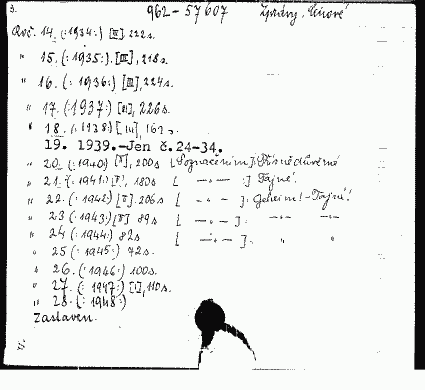 3. 962-57607 Zprávy. Cenové
Roč. 14. (:1934:) [II] 222s.
" 15. (:1935:). [III], 218s.
" 16. (:1936:) [III], 224s.
" 17. (:1937:) [II], 226s.
" 18. (:1938:) [III], 162s.
19. 1939.-Jen č.24-34.
" 20. (:1940:) [I], 200s [S označením:] Přísně důvěrné
" 21. (:1941:) [I], 180s [ -"- :] Tajné.
" 22. (:1942:) [I]. 206s [ -"- ]: Geheim!-Tajné!
" 23 (:1943:) [I] 89s [ -"- ]: -"- -"-
" 24 (:1944:) 82s [ -"- ]: " "
" 25 (:1945:) 72s.
" 26. (:1946:) 100s.
" 27. (:1947:) [I], 110s.
" 28. (:1948:)
Zastaven.